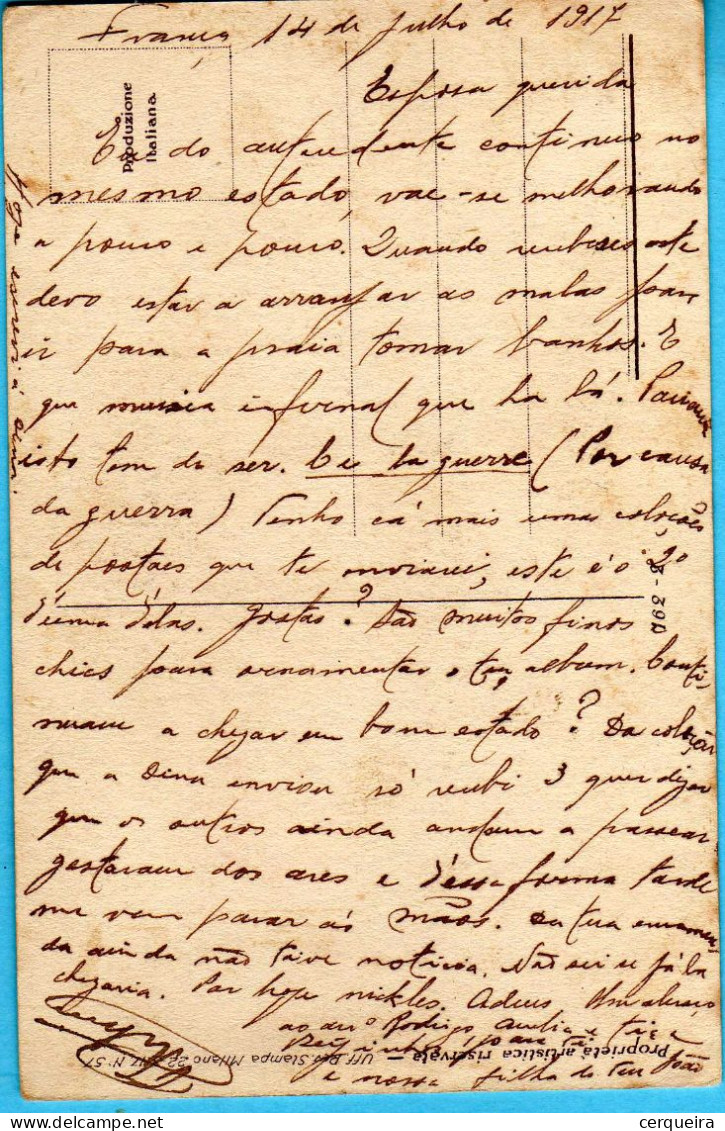 França 14 de Julho de 1917
Produzione
Italiana.
Esposa querida
do antecedente continuo no
mesmo estado, vae-se melhorando
a pouco e pouco. Quando receberes este
devo estar a arranjar as malas para
ir para a praia tomar banhos. E
que musica infernal que ha lá. Paciencia
isto tem de ser. Ce la guerre (Por causa
da guerra) Tenho cá mais umas coleções
de postaes que te enviarei, este é o 2º
d'uma d'elas. Gostas? São muitos finos
chics para ornamentar o teu album. Conti-
nuam a chegar em bom estado? Da coleção
que a Dina enviou só recebi 3 quer dizer
que os outros ainda andam a passear
gostaram dos ares e d'essa forma tarde
me vem parar ás mãos. Da tua encomen
da ainda não tive noticia. Não sei se já lá
chegaria. Por hoje nickles. Adeus Um abraço
ao snr Rodrigo, Aurelia e tia e
beijinhos para ti
e nossa filha do teu João
Hoje escrevi á Dina.
390
Proprietà artistica riservata —
Uff. Rev. Stampa Milano 22 Nº 57